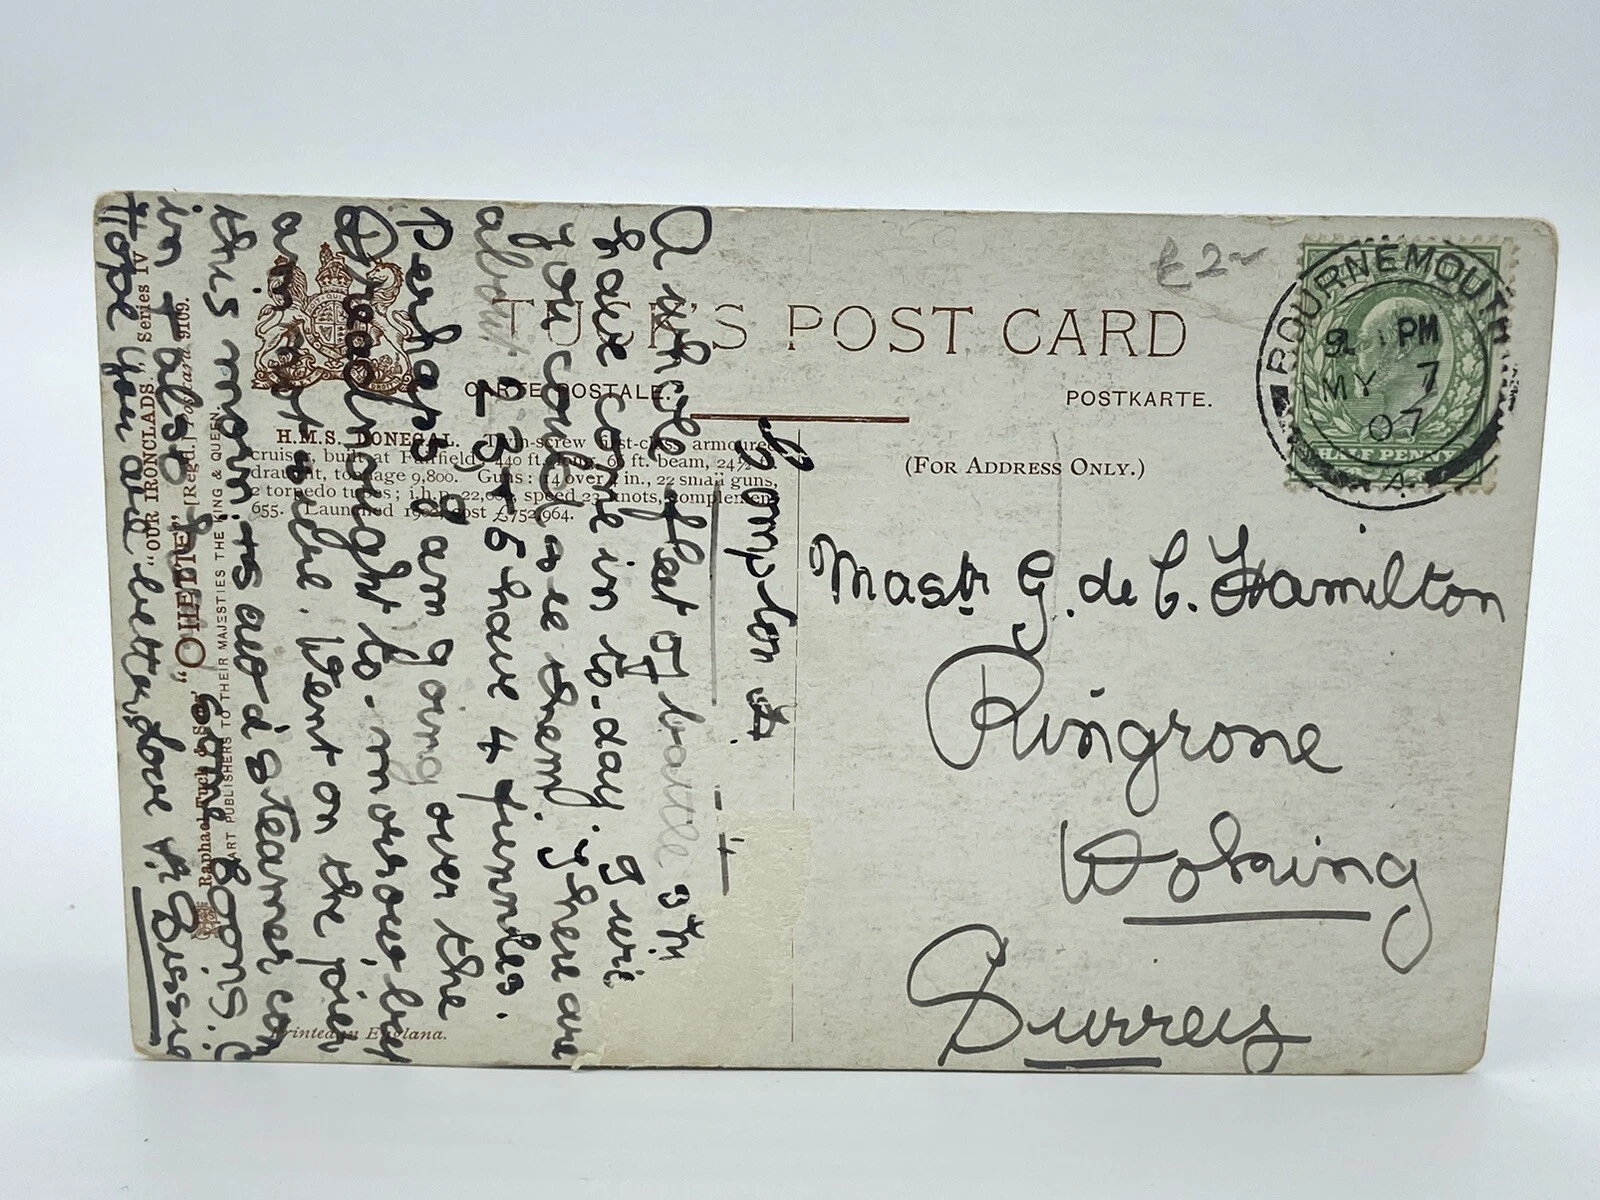 TUCK'S POST CARD
CARTE POSTALE.
POSTKARTE.
(FOR ADDRESS ONLY.)
£2-
BOURNEMOUTH
PM
MY 7
07
HALF PENNY
H.M.S. DONEGAL. Twin-screw first-class armoured
cruiser, built at Fairfield, 440 ft. long, 66 ft. beam, 24½ ft.
draught, tonnage 9,800. Guns: 14 over in., 22 small guns,
2 torpedo tubes; i.h.p. 22,000, speed 23 knots, complement
655. Launched 1902, cost £752,964.
Mastr G. de C. Hamilton
Ringrone
Woking
Surrey
Compton
A whole fleet of battle s
have come in to-day. I wis
you could see them. There are
about 23 + 5 have 4 funnels.
Perhaps I am going over the
Dreadnought to-morrow, but
am not sure. Went on the pier
this morn. is a steamer com
in also
Hope you are better. Love Bessie
"OUR IRONCLADS." Series IV
[Regd.] Postcard 9109.
"OILETTE"
Raphael Tuck & Sons
ART PUBLISHERS TO THEIR MAJESTIES THE KING & QUEEN.
Printed in England.